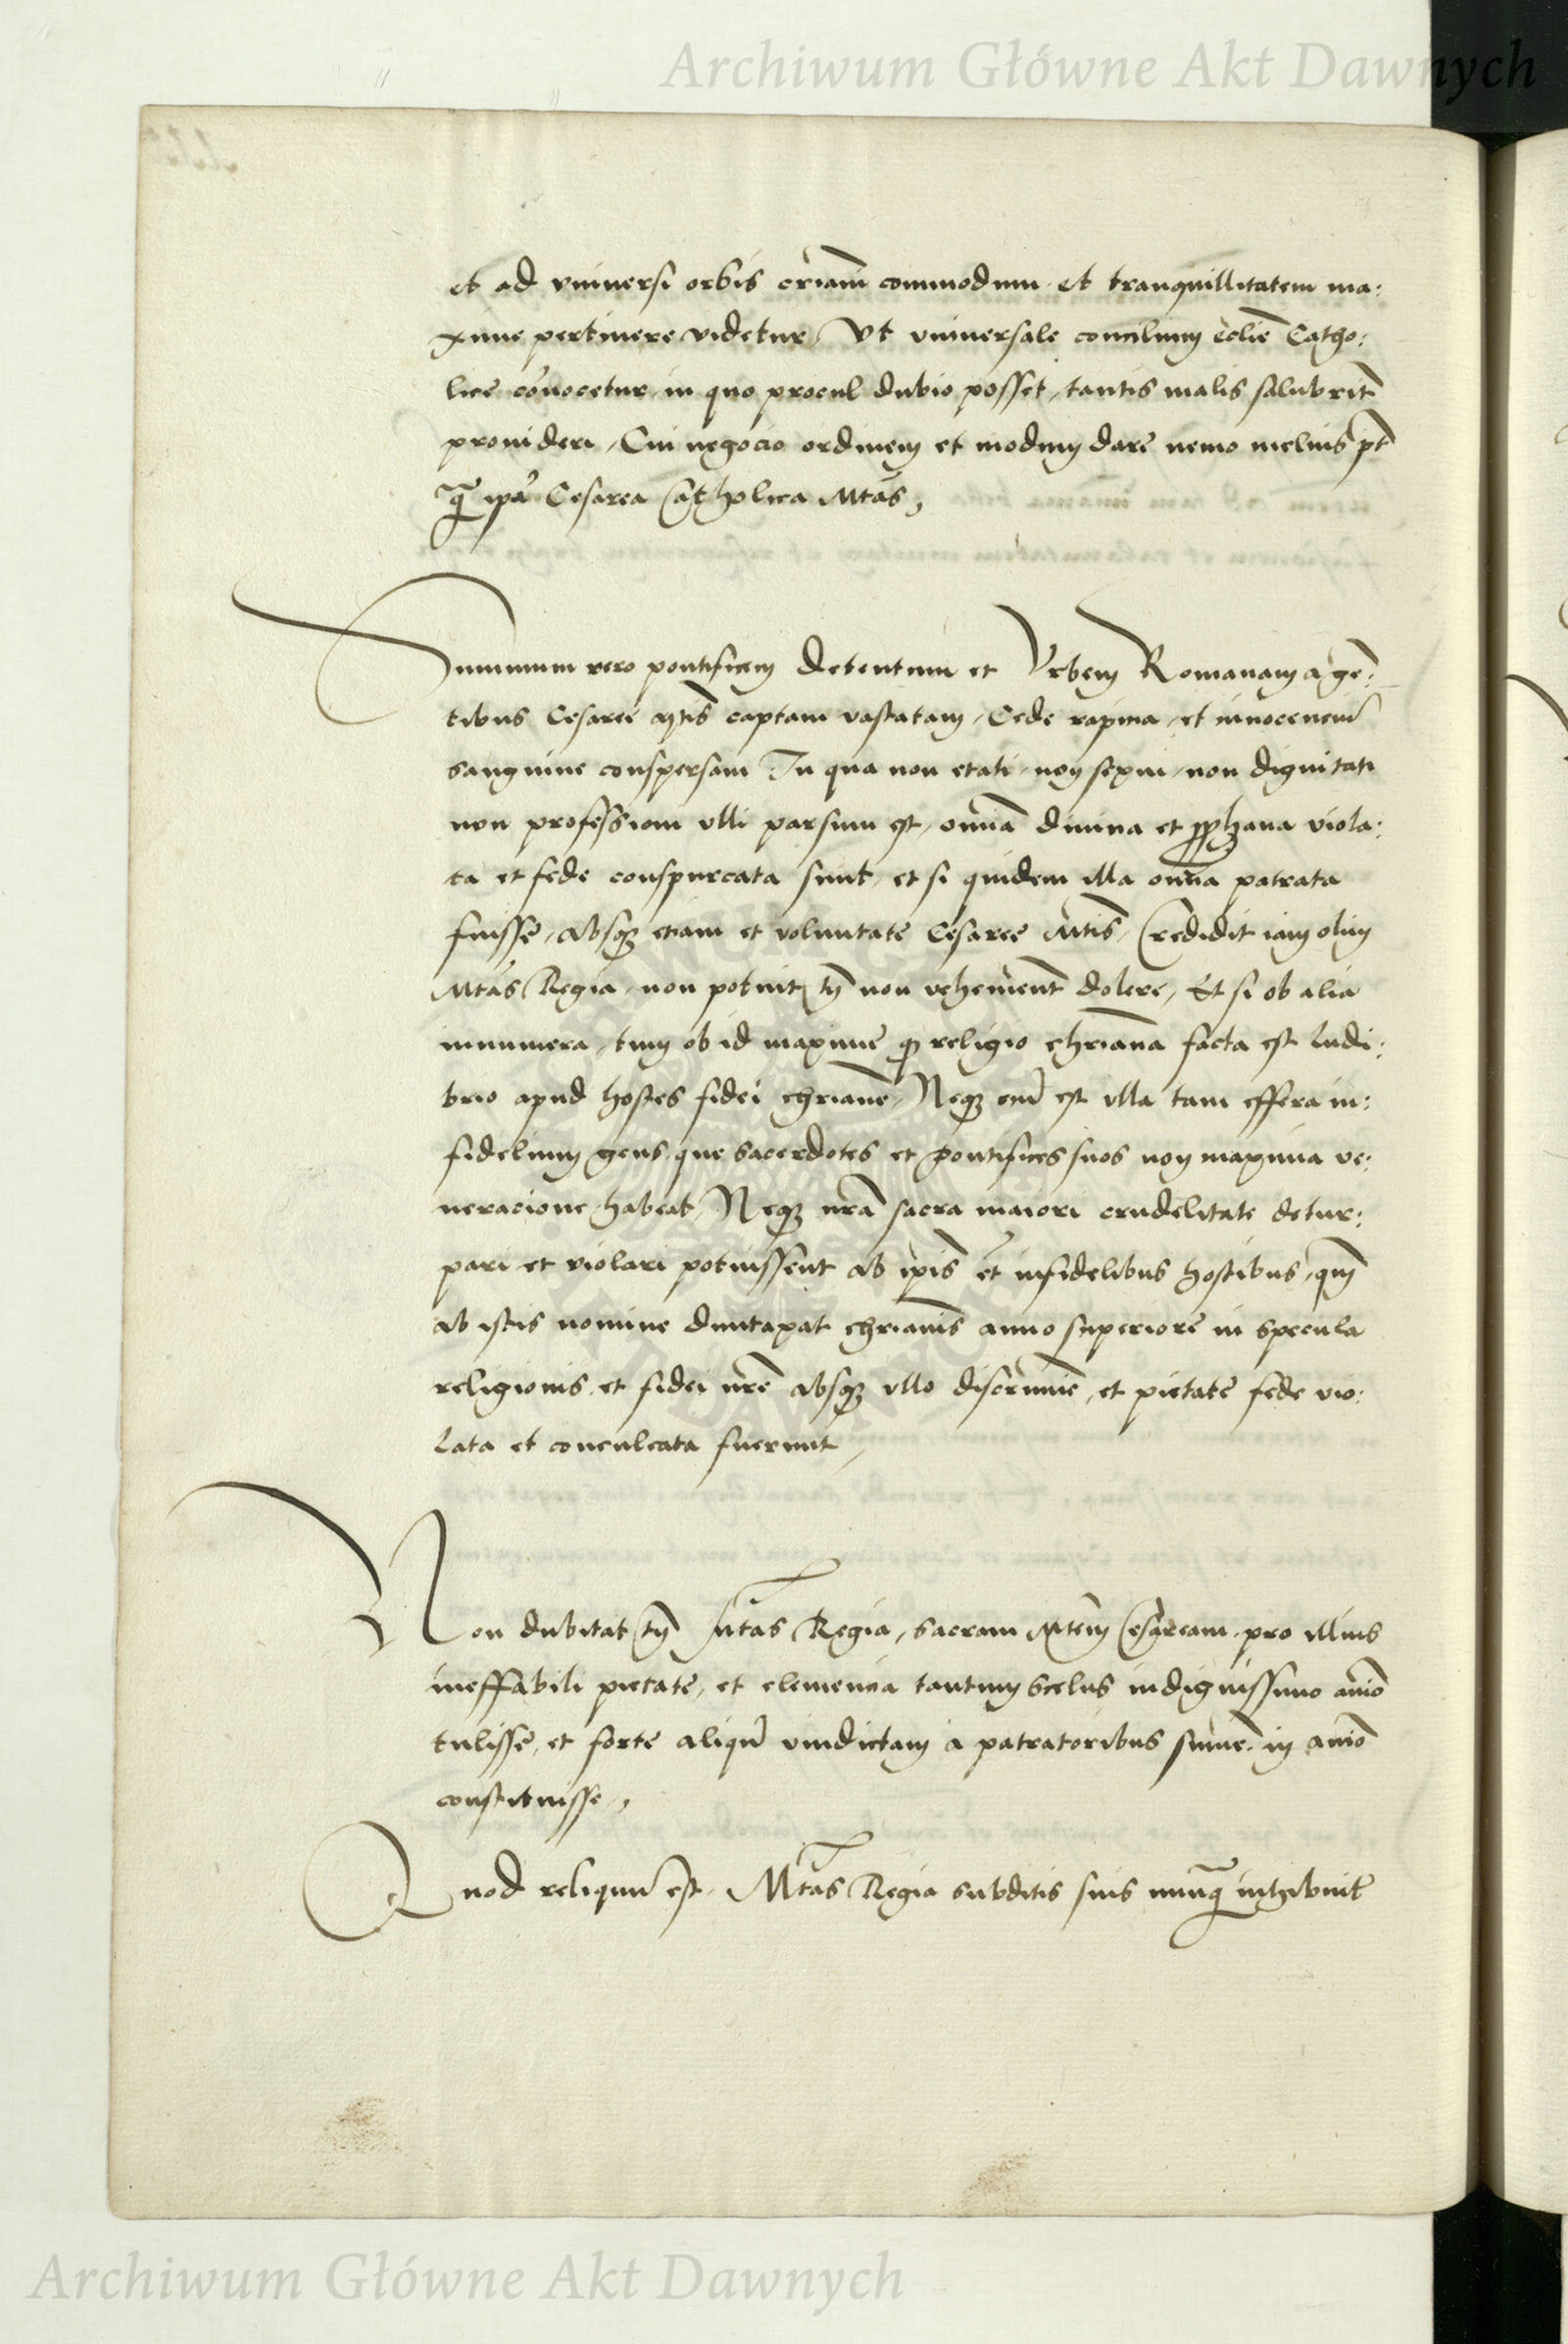 Archiwum Główne Akt Dawnych
et ad vniuersi orbis cr̄iani commodum et tranquillitatem ma:
xime pertinere videtur, Vt vniuersale concilium eccli̅e Catho:
lice co̅uocetur, in quo procul dubio posset, tantis malis salubrit̅
prouideri, Cui negocio ordinem et modum dare nemo melius pt̅
q̅ ip̅a Cesarea Catholica Mtas,
Summum vero pontificem detentum et Vrbem Romanam a ge̅:
tibus Cesaree Mtis captam vastatam, Cede rapina, et innocenciu̅
sanguine conspersam In qua non etati, non sexui, non dignitati
non professioni vlli parsum est, omnia̅ diuina et prophana viola:
ta et fede conspurcata sunt, et si quidem illa omnia patrata
fuisse, absq3 etiam et voluntate Cesaree Mtis, Credidit iam olim
Mtas Regia, non potuit tn̅ non vehement̅ dolere, Et si ob alia
innumera, tum ob id maxime q religio chri̅ana facta est ludi:
brio apud hostes fidei chri̅ane, Neq3 eni̅ est vlla tam effera in:
fidelium gens que sacerdotes et pontifices suos non maxima ve:
neracione habeat, Neq3 nr̅a sacra maiori crudelitate detur:
pari et violari potuissent ab ip̅is et̅ infidelibus hostibus, qm̅
ab istis nomine duntaxat chri̅anis anno superiore in specula
religionis et fidei nr̅e absq3 vllo discrimi̅e, et pietate fede vio:
lata et conculcata fuerunt,
Non dubitat tn̅ Mtas Regia, sacram Mtem Cesaream pro illius
ineffabili pietate, et clemencia tantum scelus indignissimo ani̅o
tulisse, et forte aliqu̅ vindictam a patratoribus sumer̅e in ani̅o
constituisse,
Quod reliquu̅ est, Mtas Regia subditis suis nunq̅ inhibuit
Archiwum Główne Akt Dawnych